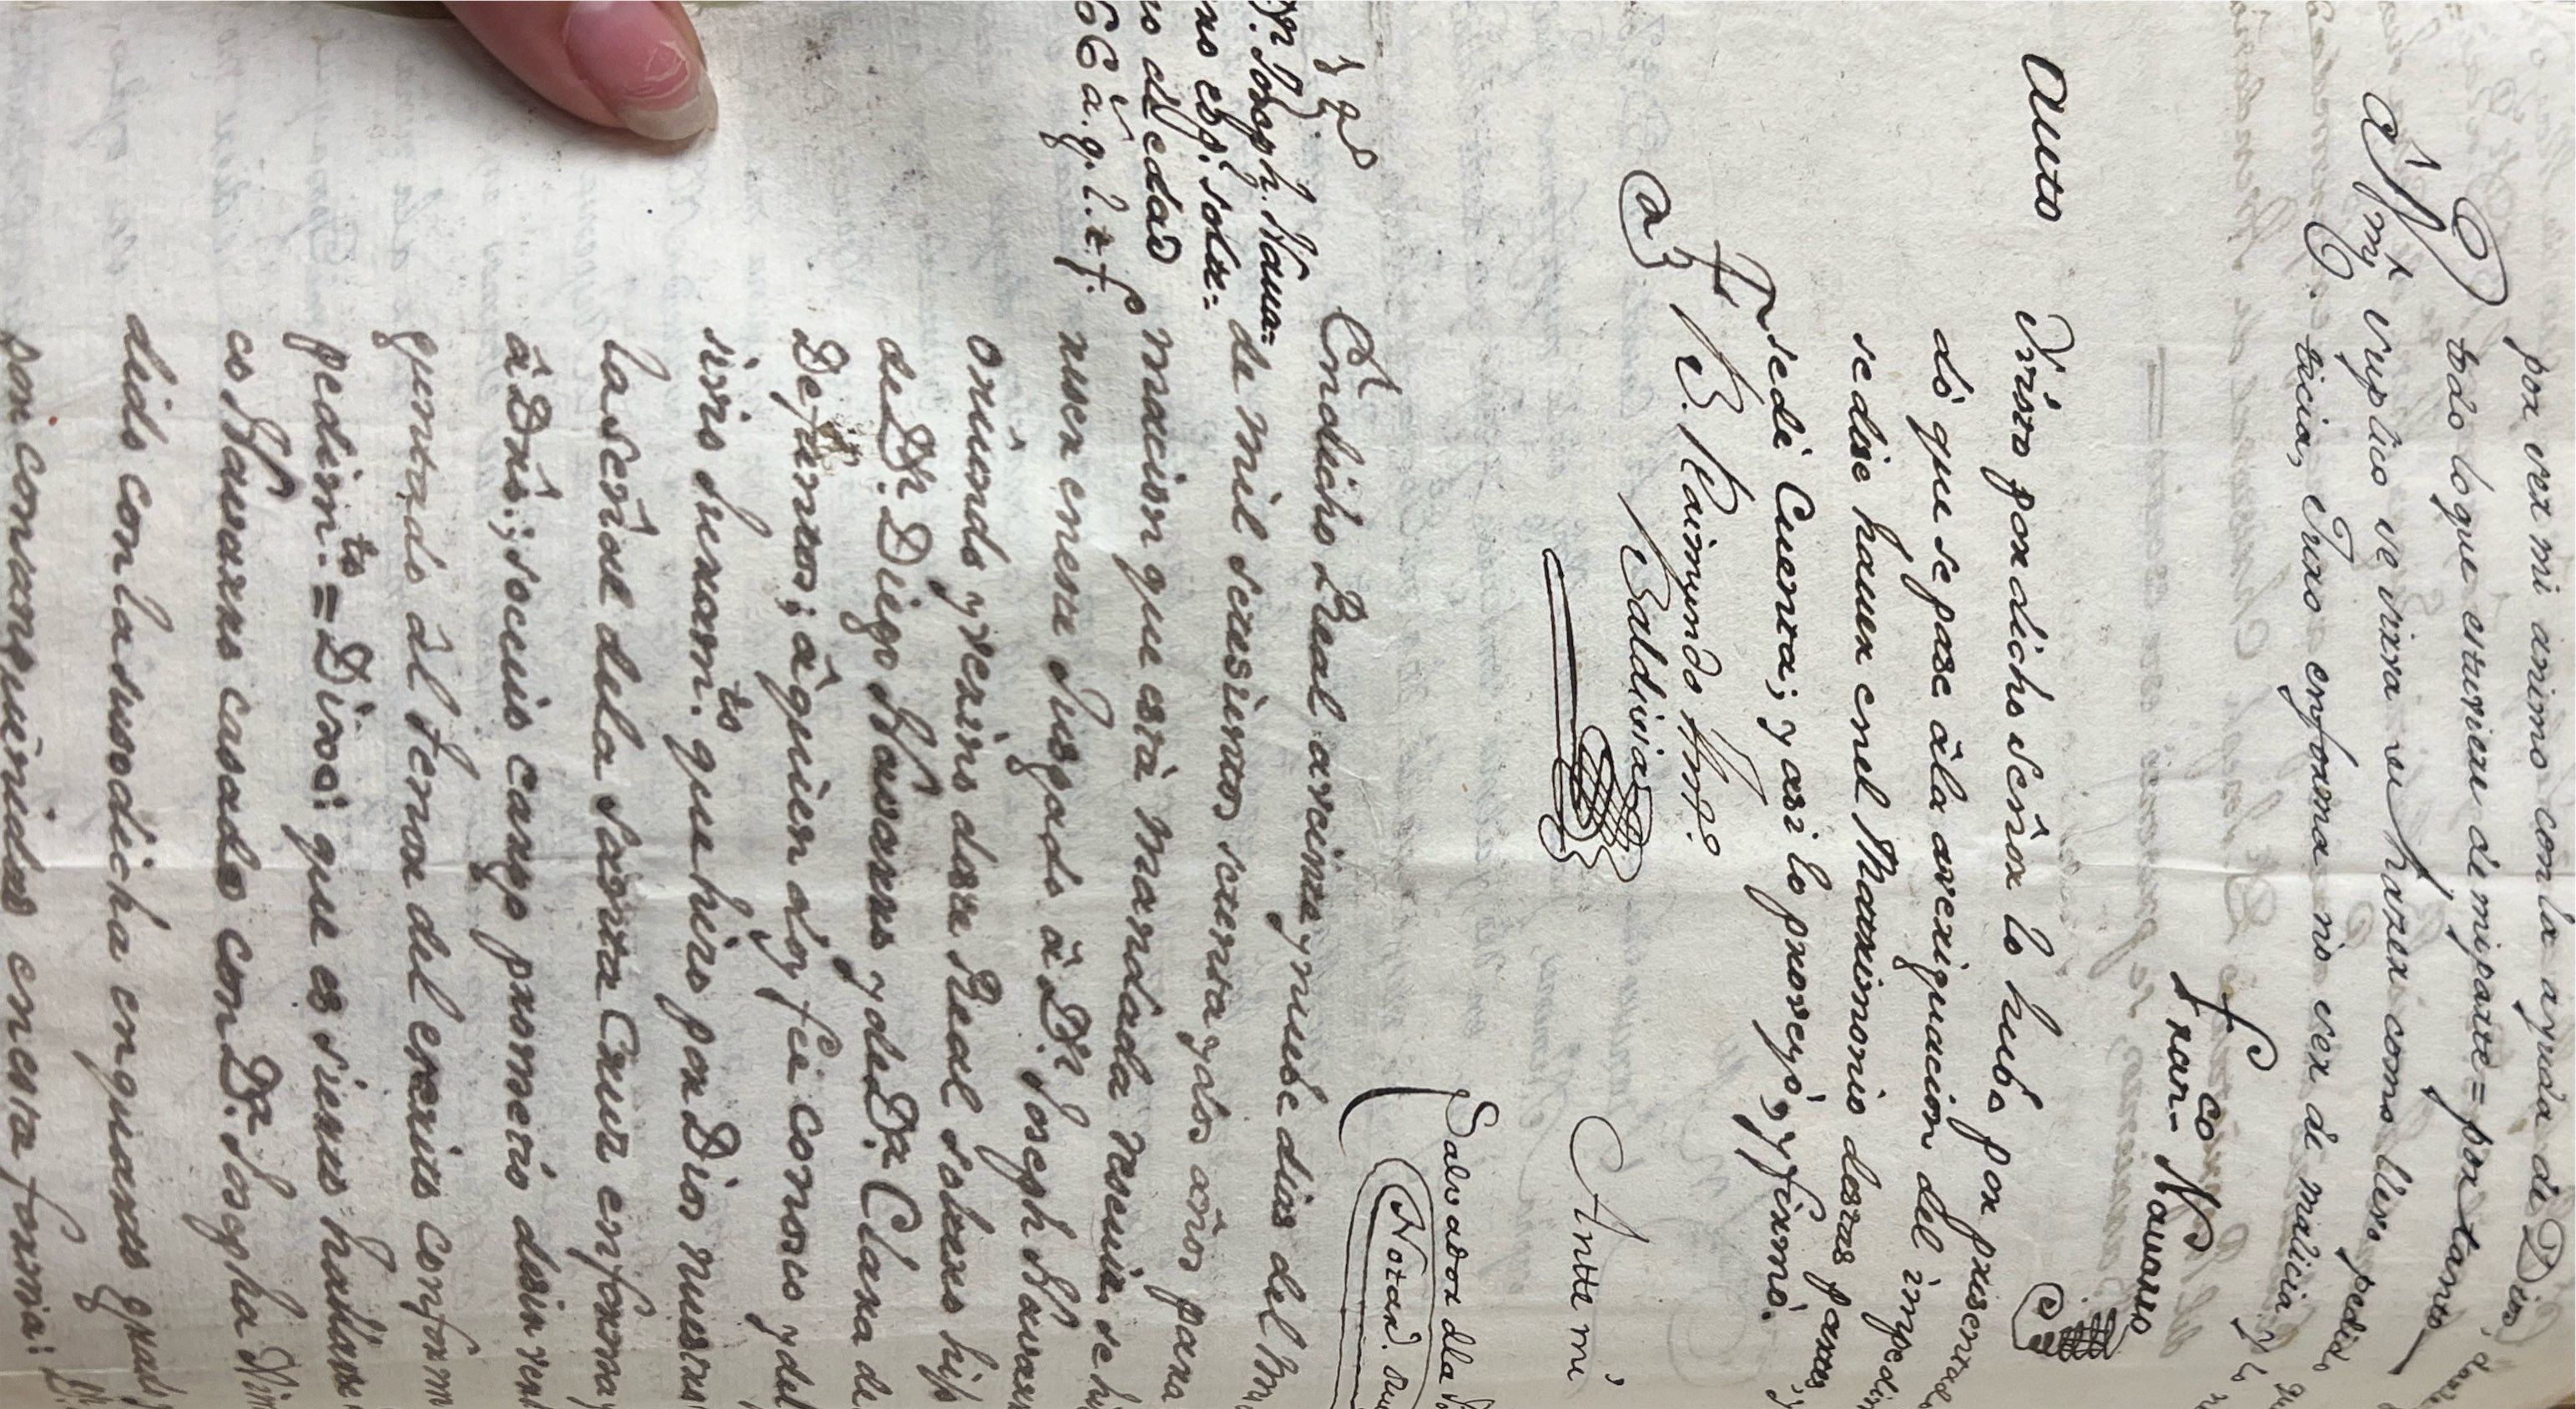 por ser mi animo con la ayuda de Dios, darle
todo lo que estuviere de mi parte = por tanto
â Vm suplico se sirva de hazer como llevo pedido
ticia, Juro en forma no ser de malicia y lo
Fran.co Navarro
auto
Visto por dicho Señor lo hubo por presentado
dò que se pase âla averiguacion del impedim
se dise hauer enel Matrimonio destas partes, y
sedè Cuenta; y asi lo proveyò, y firmò.
B. Raimundo Ant.o
Baldivia
Antte mi
Salvador dla
Notar.
En dicho Real a veinte y nuebe dias del
de mil setesientos setenta y dos años para
macion que està mandada reseuir se hi
reser eneste Jusgado â Dn. Joseph Navarr
oriundo y vezino deste Real soltero hijo
de Dn. Diego Navarro y de Da. Clara de
Defuntos; â quien doy feè conosco y del
siviò Juram.to que hizo por Dios nuestro
la señal dela Santa Cruz en forma y
â Dro.; so cuio cargo prometiò desir verd
guntado âl tenor del escrito conform
pedim.to = Dixo: que es sierto hallarse
co Navarro casado con Da. Josepha Xim
dido con la susodicha en quarto grado
por consanguinidad en esta forma: D.
Dn. Joseph. Naua=
rro esp.l solte=
ro de edad
66 a. q. l. t. f.